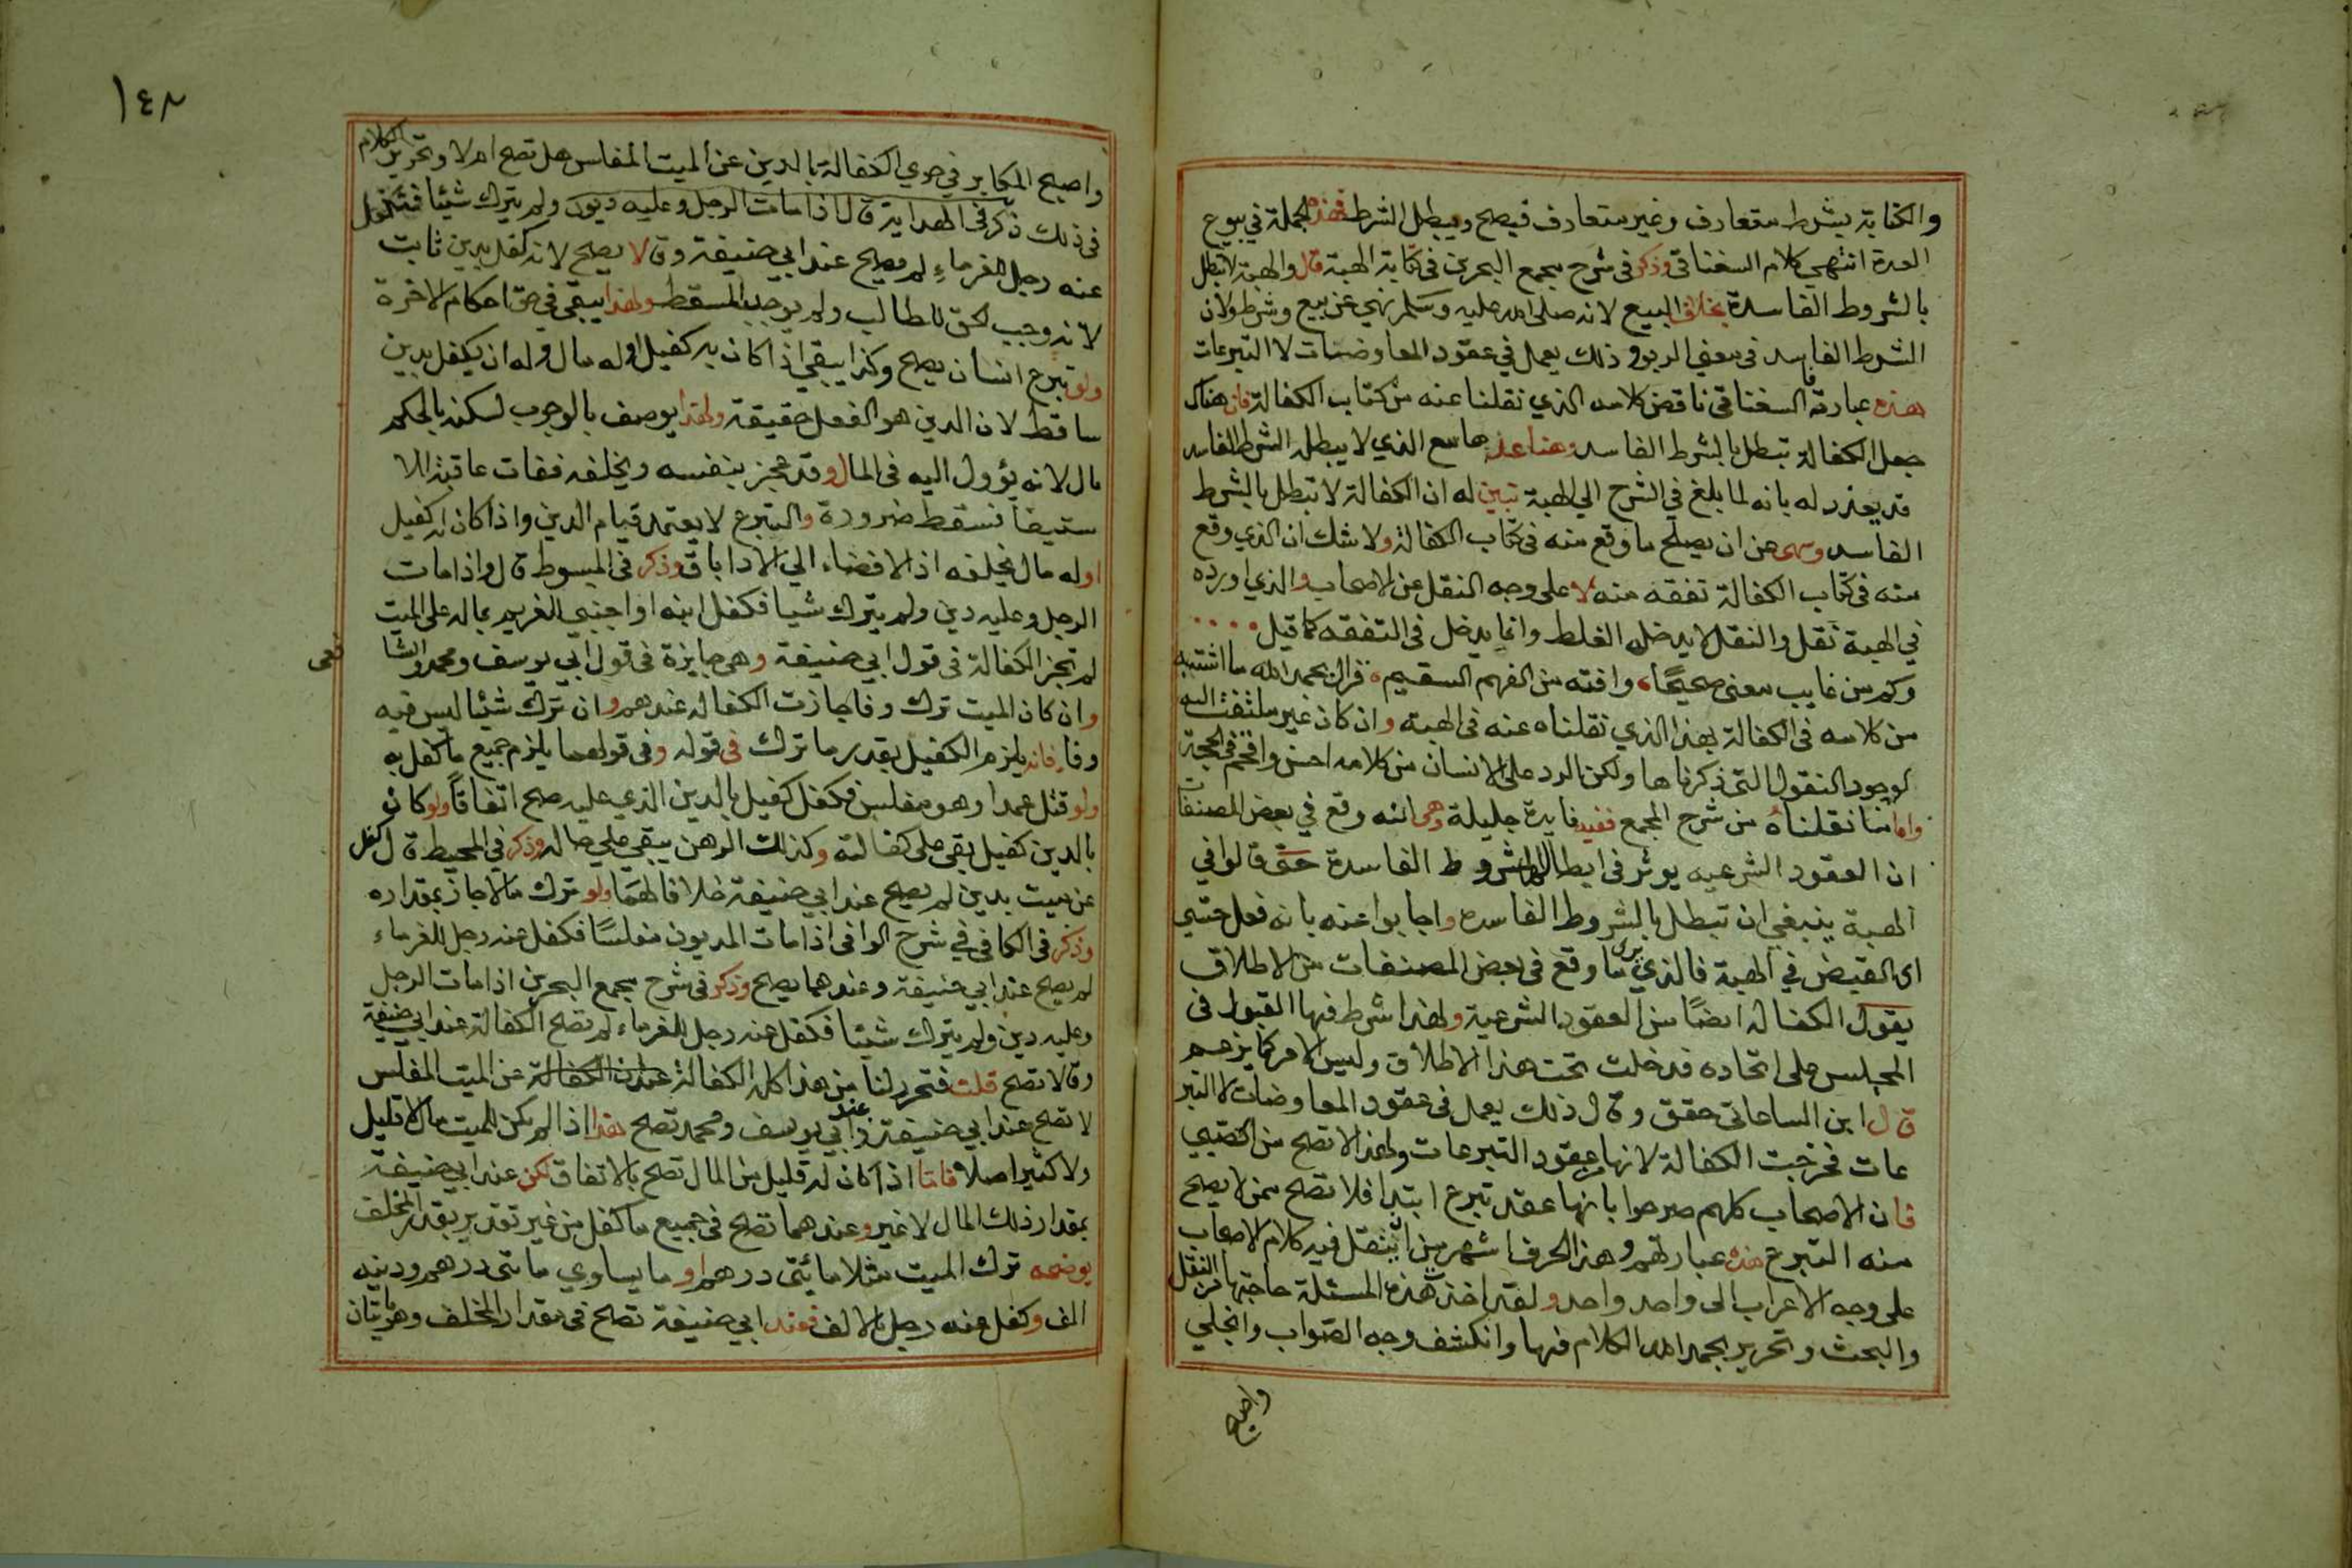 والكفاية بشرط متعارف وغير متعارف فيصح ويبطل الشرط فهذه الجملة في بيوع
العدة انتهي كلام السغناقي وذكر في شرح مجمع البحرين في كتابة الهبة قال والهبة لا تبطل
بالشروط الفاسدة بخلاف البيع لانه صلى الله عليه وسلم نهي عن بيع وشرط ولان
الشرط الفاسد في معني الربو وذلك يعمل في عقود المعاوضات لا التبرعات
هذه عبارته السغناقي ناقض كلامه الذي نقلنا عنه من كتاب الكفالة فان هناك
جعل الكفالة تبطل بالشرط الفاسد وهنا عدها مع الذي لا يبطله الشرط الفاسد
قد يعذر له بانه لما بلغ في الشرح الي الهبة تبين له ان الكفالة لا تبطل بالشرط
الفاسد وسهى عن ان يصلح ما وقع منه في كتاب الكفالة ولا شك ان الذي وقع
منه في كتاب الكفالة تفقه منه لا على وجه النقل عن الاصحاب والذي اورده
في الهبة نقل والنقل لا يدخله الغلط وانما يدخل في التفقه كما قيل
وكم من غايب معنى صحيحًا، وافته من الفهم السقيم، فزال بحمد الله ما اشتبه
من كلامه في الكفالة بهذا الذي نقلناه عنه في الهبة وان كان غير ملتفت اليه
لوجود النقول التي ذكرناها ولكن الرد على الانسان من كلامه احسن وافخم في الحجة
واما ما نقلناه من شرح المجمع ففيه فايدة جليلة وهي انه وقع في بعض المصنفات
ان العقود الشرعيه يوثر في ابطالها الشروط الفاسدة حتى قالوا في
الهبة ينبغي ان تبطل بالشروط الفاسده واجابوا عنه بانه فعل حسي
اي القبض في الهبة فالذي يرى ما وقع في بعض المصنفات من الاطلاق
يقول الكفالة ايضًا من العقود الشرعية ولهذا شرط فيها القبول في
المجلس على اتحاده فدخلت تحت هذا الاطلاق وليس الامر كما يزعم
قال ابن الساعاتي حقق وقال ذلك يعمل في عقود المعاوضات لا التبر
عات فخرجت الكفالة لانها من عقود التبرعات ولهذا لا تصح من الصبي
فان الاصحاب كلهم صرحوا بانها عقد تبرع ابتدا فلا تصح ممن لا يصح
منه التبرع هذه عبارتهم وهذا الحرف اشهر من ان ينقل فيه كلام الاصحاب
على وجه الاعراب الى واحد واحد ولقد اخذت هذه المسئلة حاجتها من النقل
والبحث وتحرير بحمد الله الكلام فيها وانكشف وجه الصواب وانجلي
واصبح
١٤٨
واصبح المكابر في الكفالة بالدين عن الميت المفلس هل تصح ام لا وتحرير الكلام
في ذلك ذكر في الهداية قال اذا مات الرجل وعليه ديون ولم يترك شيئا فتكفل
عنه رجل للغرماء لم يصح عند ابي حنيفة وقالا يصح لانه كفل بدين ثابت
لانه وجب لحق الطالب ولم يوجد المسقط ولهذا يبقي في حق احكام الاخرة
ولو تبرع انسان يصح وكذا يبقي اذا كان به كفيل او له مال وله ان يكفل بدين
ساقط لان الدين هو الفعل حقيقة ولهذا يوصف بالوجوب لكنه بالحكم
مال لانه يؤول اليه في المال وقد عجز بنفسه وبخلفه ففات عاقبة الا
ستيفاء فسقط ضرورة والتبرع لا يعتمد قيام الدين واذا كان به كفيل
او له مال فخلفه اذ الافضاء الي الادا باق وذكر في المبسوط قال واذا مات
الرجل وعليه دين ولم يترك شيا فكفل ابنه او اجنبي الغريم بماله على الميت
لم تجز الكفالة في قول ابي حنيفة وهي جايزة في قول ابي يوسف ومحمد والشا
فعي
وان كان الميت ترك وفا جازت الكفالة عندهم وان ترك شئا ليس فيه
وفاء فانه يلزم الكفيل بقدر ما ترك في قوله وفي قولهما يلزم جميع ما كفل به
ولو قتل عمدا وهو مفلس فكفل كفيل بالدين الذي عليه صح اتفاقًا ولو كان
بالدين كفيل بقي على كفالته وكذلك الرهن يبقي على حاله وذكر في المحيط قال كفل
عن ميت بدين لم يصح عند ابي حنيفة خلافا لهما ولو ترك مالا جاز بمقداره
وذكر في الكافي في شرح الوافي اذا مات المديون مفلسًا فكفل عنه رجل للغرماء
لم يصح عند ابي حنيفة وعندهما يصح وذكر في شرح مجمع البحرين اذا مات الرجل
وعليه دين ولم يترك شيئا فكفل عنه رجل للغرماء لم تصح الكفالة عند ابي حنيفة
وقالا تصح قلت فتحرر لنا من هذا كله الكفالة عن الميت المفلس
لا تصح عند ابي حنيفة وعند ابي يوسف ومحمد تصح هذا اذا لم يكن للميت مال لا قليل
ولا كثير اصلا فاما اذا كان له قليل من المال تصح بالاتفاق لكن عند ابي حنيفة
بمقدار ذلك المال لا غير وعندهما تصح في جميع ما كفل من غير تقدير بقدر المخلف
يوضحه ترك الميت مثلا مائتي درهم او ما يساوي مائتي درهم ودينه
الف وكفل عنه رجل بالالف فعند ابي حنيفة تصح في مقدار المخلف وهو مايتان